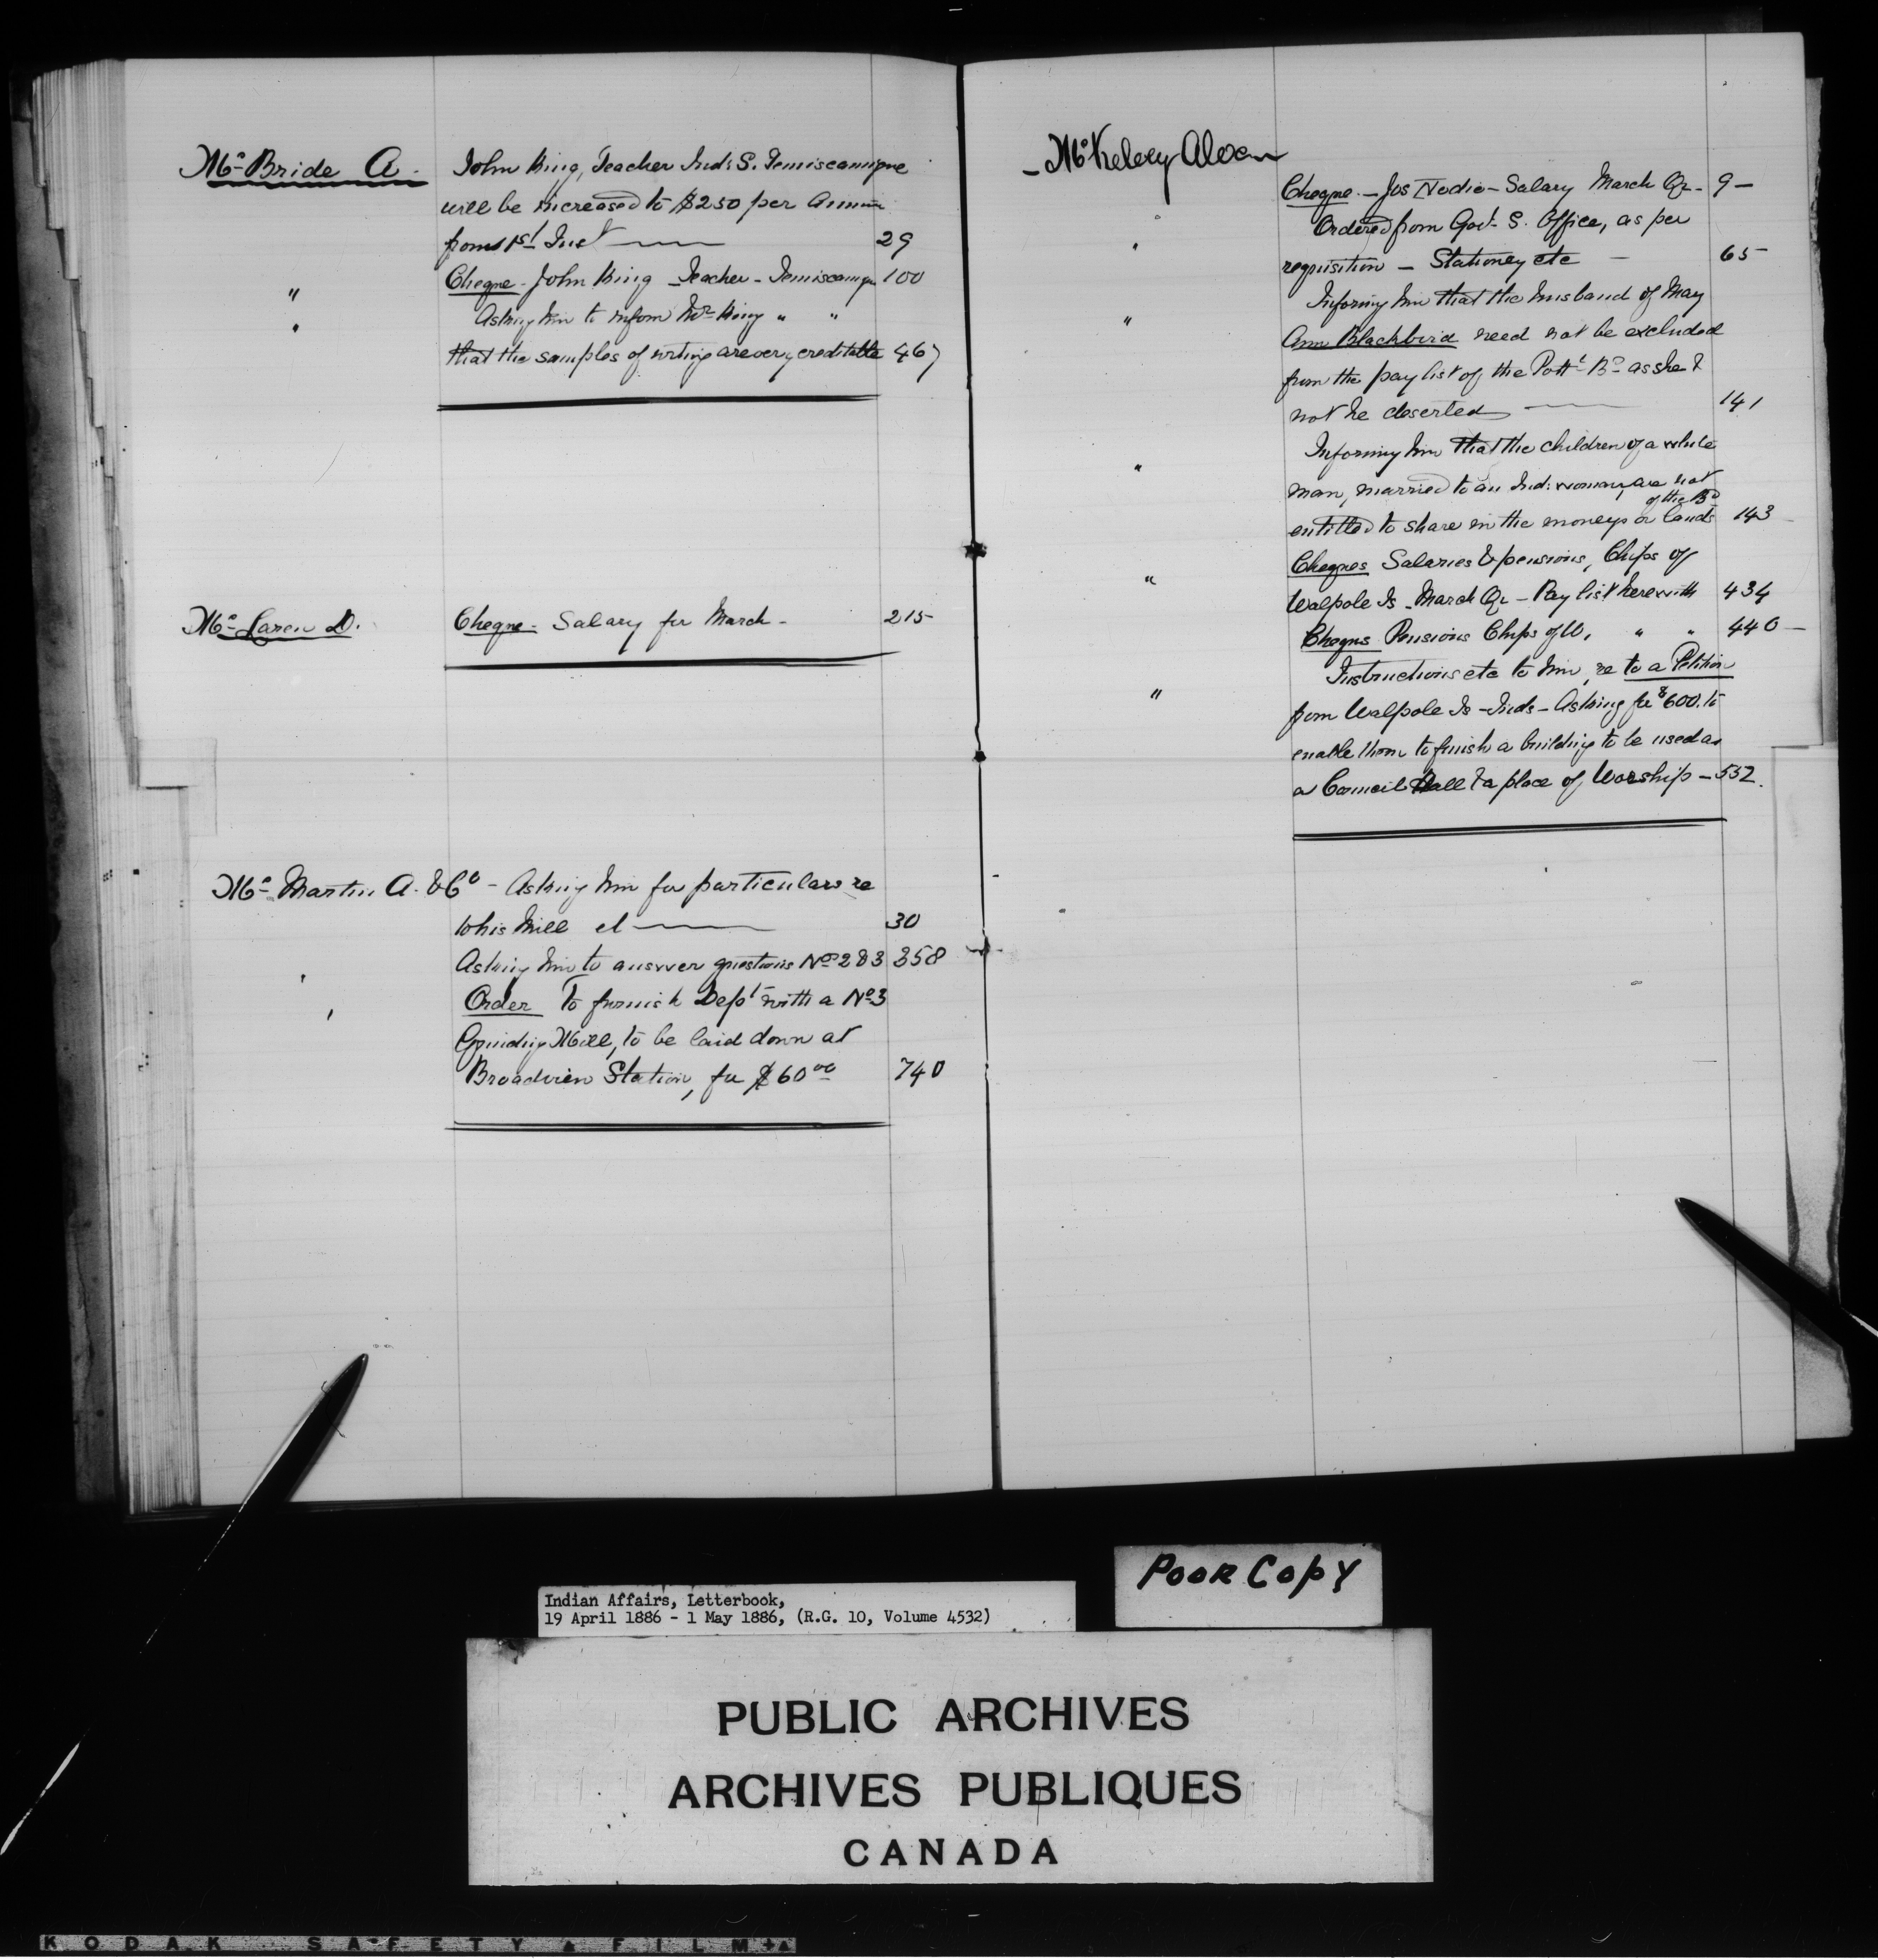 Mc Bride A. John King, Teacher Ind: S. Temiscamigue
will be increased to $250 per Annum
from 1st Inst 29
" Cheque - John King - Teacher - Temiscamigue 100
" Asking him to inform Mr King " "
that the samples of writing are very creditable 467
Mc Laren D. Cheque - Salary for March - 215
Mc Martin A. & Co - Asking him for particulars re
to his Mill 30
" Asking him to answer questions No 283 358
" Order To furnish Dept with a No 3
Grinding Mill, to be laid down at
Broadview Station, for $60 00 740
Mc Kelvey Alexn
Cheque - Jos Nodie - Salary March Qr - 9 -
" Ordered from Govt S. Office, as per
" requisition - Stationery etc - 65
Informing him that the husband of May
" Ann Blackbird need not be excluded
from the pay list of the Pottt Bd as she &
not he deserted 141
Informing him that the children of a white
" man, married to an Ind: woman, are not
of the Bd
entitled to share in the moneys or lands 143
Cheques Salaries & pensions, Chfps of
" Walpole Is - March Qr - Pay list herewith 434
Cheques Pensions Chfps of W. " " 440 -
Instructions etc to him, re to a Petition
" from Walpole Is - Inds - Asking for $600. to
enable them to finish a building to be used as
a Council Hall & a place of Worship - 552.
Poor Copy
Indian Affairs, Letterbook,
19 April 1886 - 1 May 1886, (R.G. 10, Volume 4532)
PUBLIC ARCHIVES
ARCHIVES PUBLIQUES
CANADA
KODAK SAFETY FILM